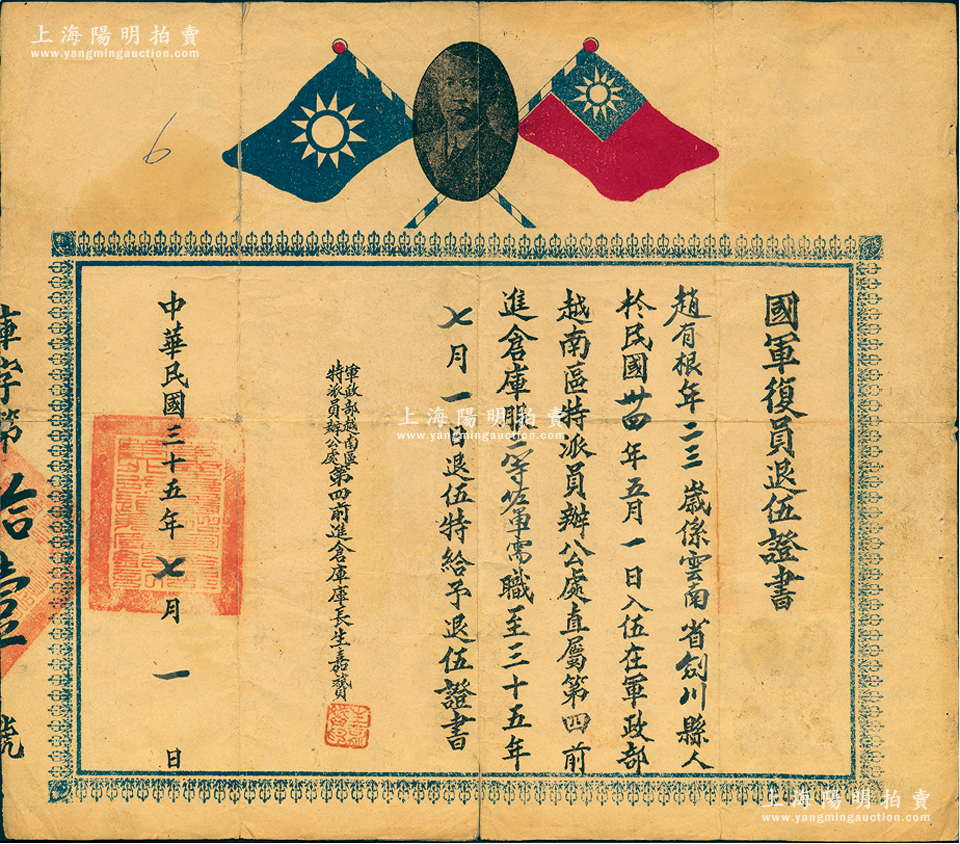 上海陽明拍賣
www.yangmingauction.com
6
國軍復員退伍證書
趙有根年二三歲係雲南省劍川縣人
於民國卅四年五月一日入伍在軍政部
越南區特派員辦公處直屬第四前
進倉庫服等佐軍需職至三十五年
七月一日退伍特給予退伍證書
軍政部越南區
特派員辦公處
第四前進倉庫庫長生嘉贊
中華民國三十五年七月一日
庫字第拾壹號
上海陽明拍賣
www.yangmingauction.com
上海陽明拍賣
www.yangmingauction.com